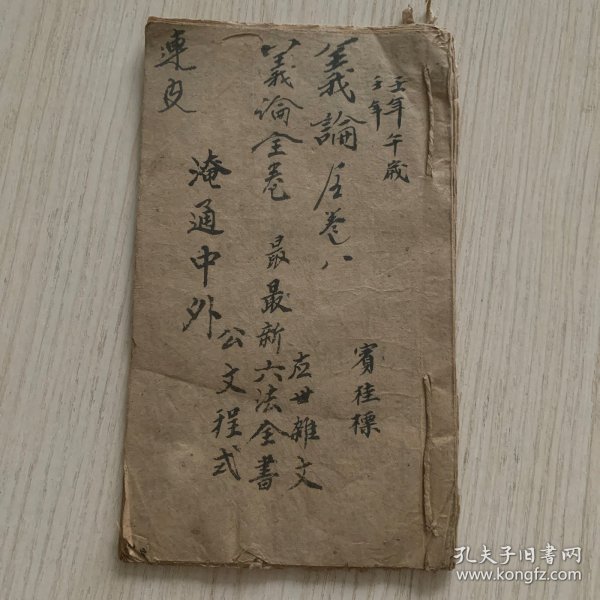 壬年午歳
壬年
賓桂標
義論 卷八
应世雜文
義論全卷 最最新六法全書
公文程式
淹通中外
連皮
孔夫子旧书网
www.kongfz.com